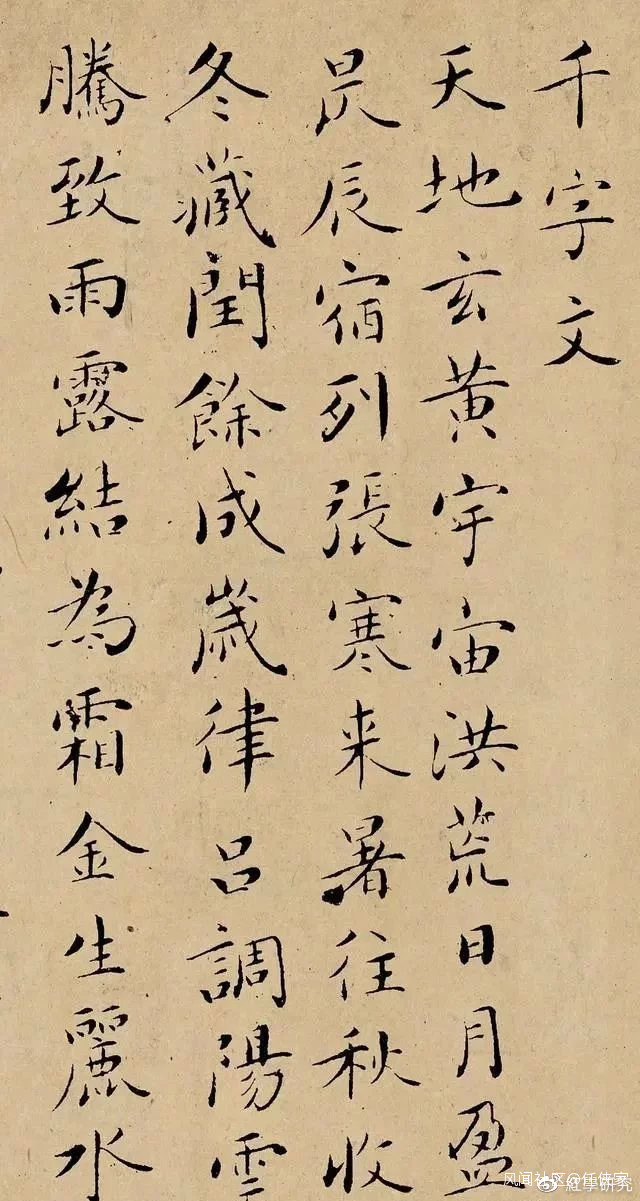 千字文
天地玄黄宇宙洪荒日月盈
昃辰宿列張寒来暑往秋收
冬藏閏餘成歲律吕調陽雲
騰致雨露結為霜金生麗水
风闻社区@任
研究